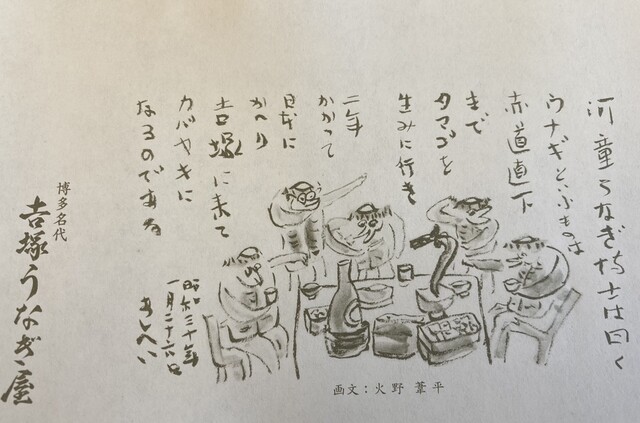 河童うなぎ博士は曰く
ウナギといふものは
赤道直下
まで
タマゴを
生みに行き
二年
かかって
日本に
かへり
吉塚に来て
カバヤキに
なるのである
昭和三十年
一月二十六日
あしへい
画文：火野 葦平
博多名代
吉塚うなぎ屋